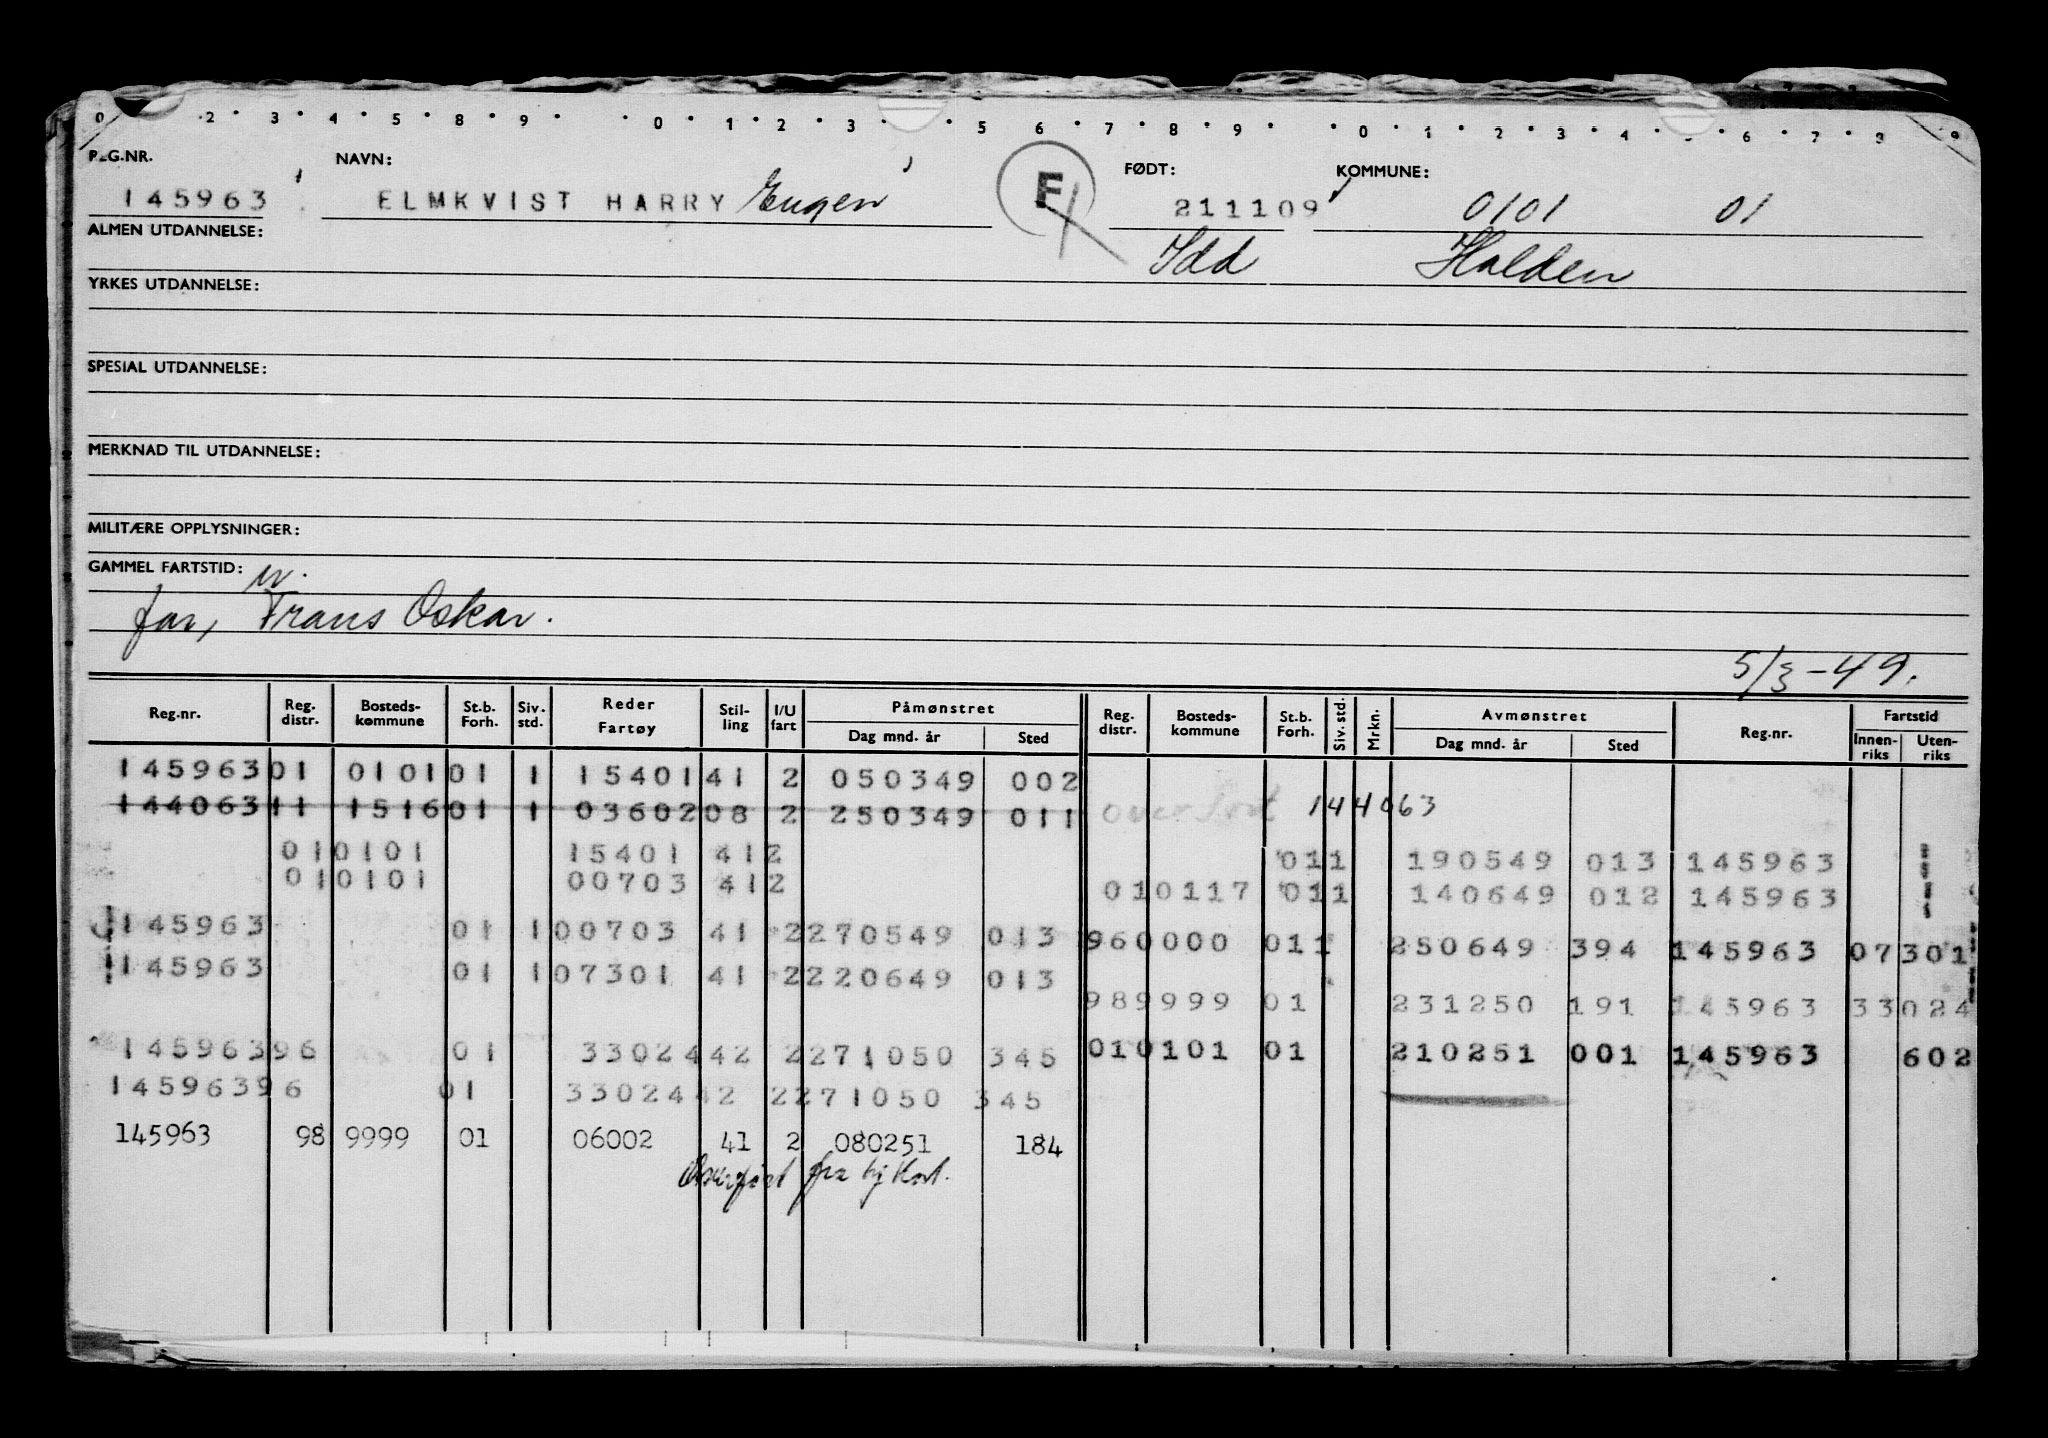 0 2 3 4 5 8 9 0 1 2 3 5 6 7 8 9 0 1 2 3 4 5 6 7 8 9
REG.NR. NAVN: FØDT: KOMMUNE:
145963 ELMKVIST HARRY Eugen F 211109 0101 01
ALMEN UTDANNELSE: Idd Halden
YRKES UTDANNELSE:
SPESIAL UTDANNELSE:
MERKNAD TIL UTDANNELSE:
MILITÆRE OPPLYSNINGER:
GAMMEL FARTSTID:
far, Frans Oskar.
5/3-49.
Reg.nr. Reg. distr. Bosteds- kommune St.b. Forh. Siv. std. Reder Fartøy Stil- ling I/U fart Påmønstret Dag mnd. år Sted Reg. distr. Bosteds- kommune St.b. Forh. Siv. std. Mrkn. Avmønstret Dag mnd. år Sted Reg.nr. Fartstid Innen- riks Uten- riks
145963 01 0101 01 1 15401 41 2 050349 002
144063 11 1516 01 1 03602 08 2 250349 011 overført 144063
010101 15401 412 011 190549 013 145963
010101 00703 412 010117 011 140649 012 145963
145963 01 1 00703 41 2 270549 013 960000 011 250649 394 145963 07301
145963 01 1 07301 41 2 220649 013
989999 01 231250 191 145963 33024
145963 96 01 33024 42 2 271050 345 010101 01 210251 001 145963 602
145963 96 01 33024 42 2 271050 345
145963 98 9999 01 06002 41 2 080251 184
Overført fra hj kort.